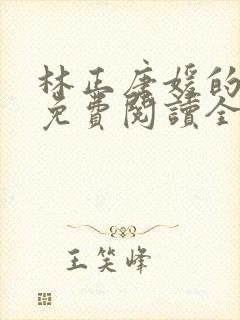 林正唐媛的
免費閱讀全
王笑峰